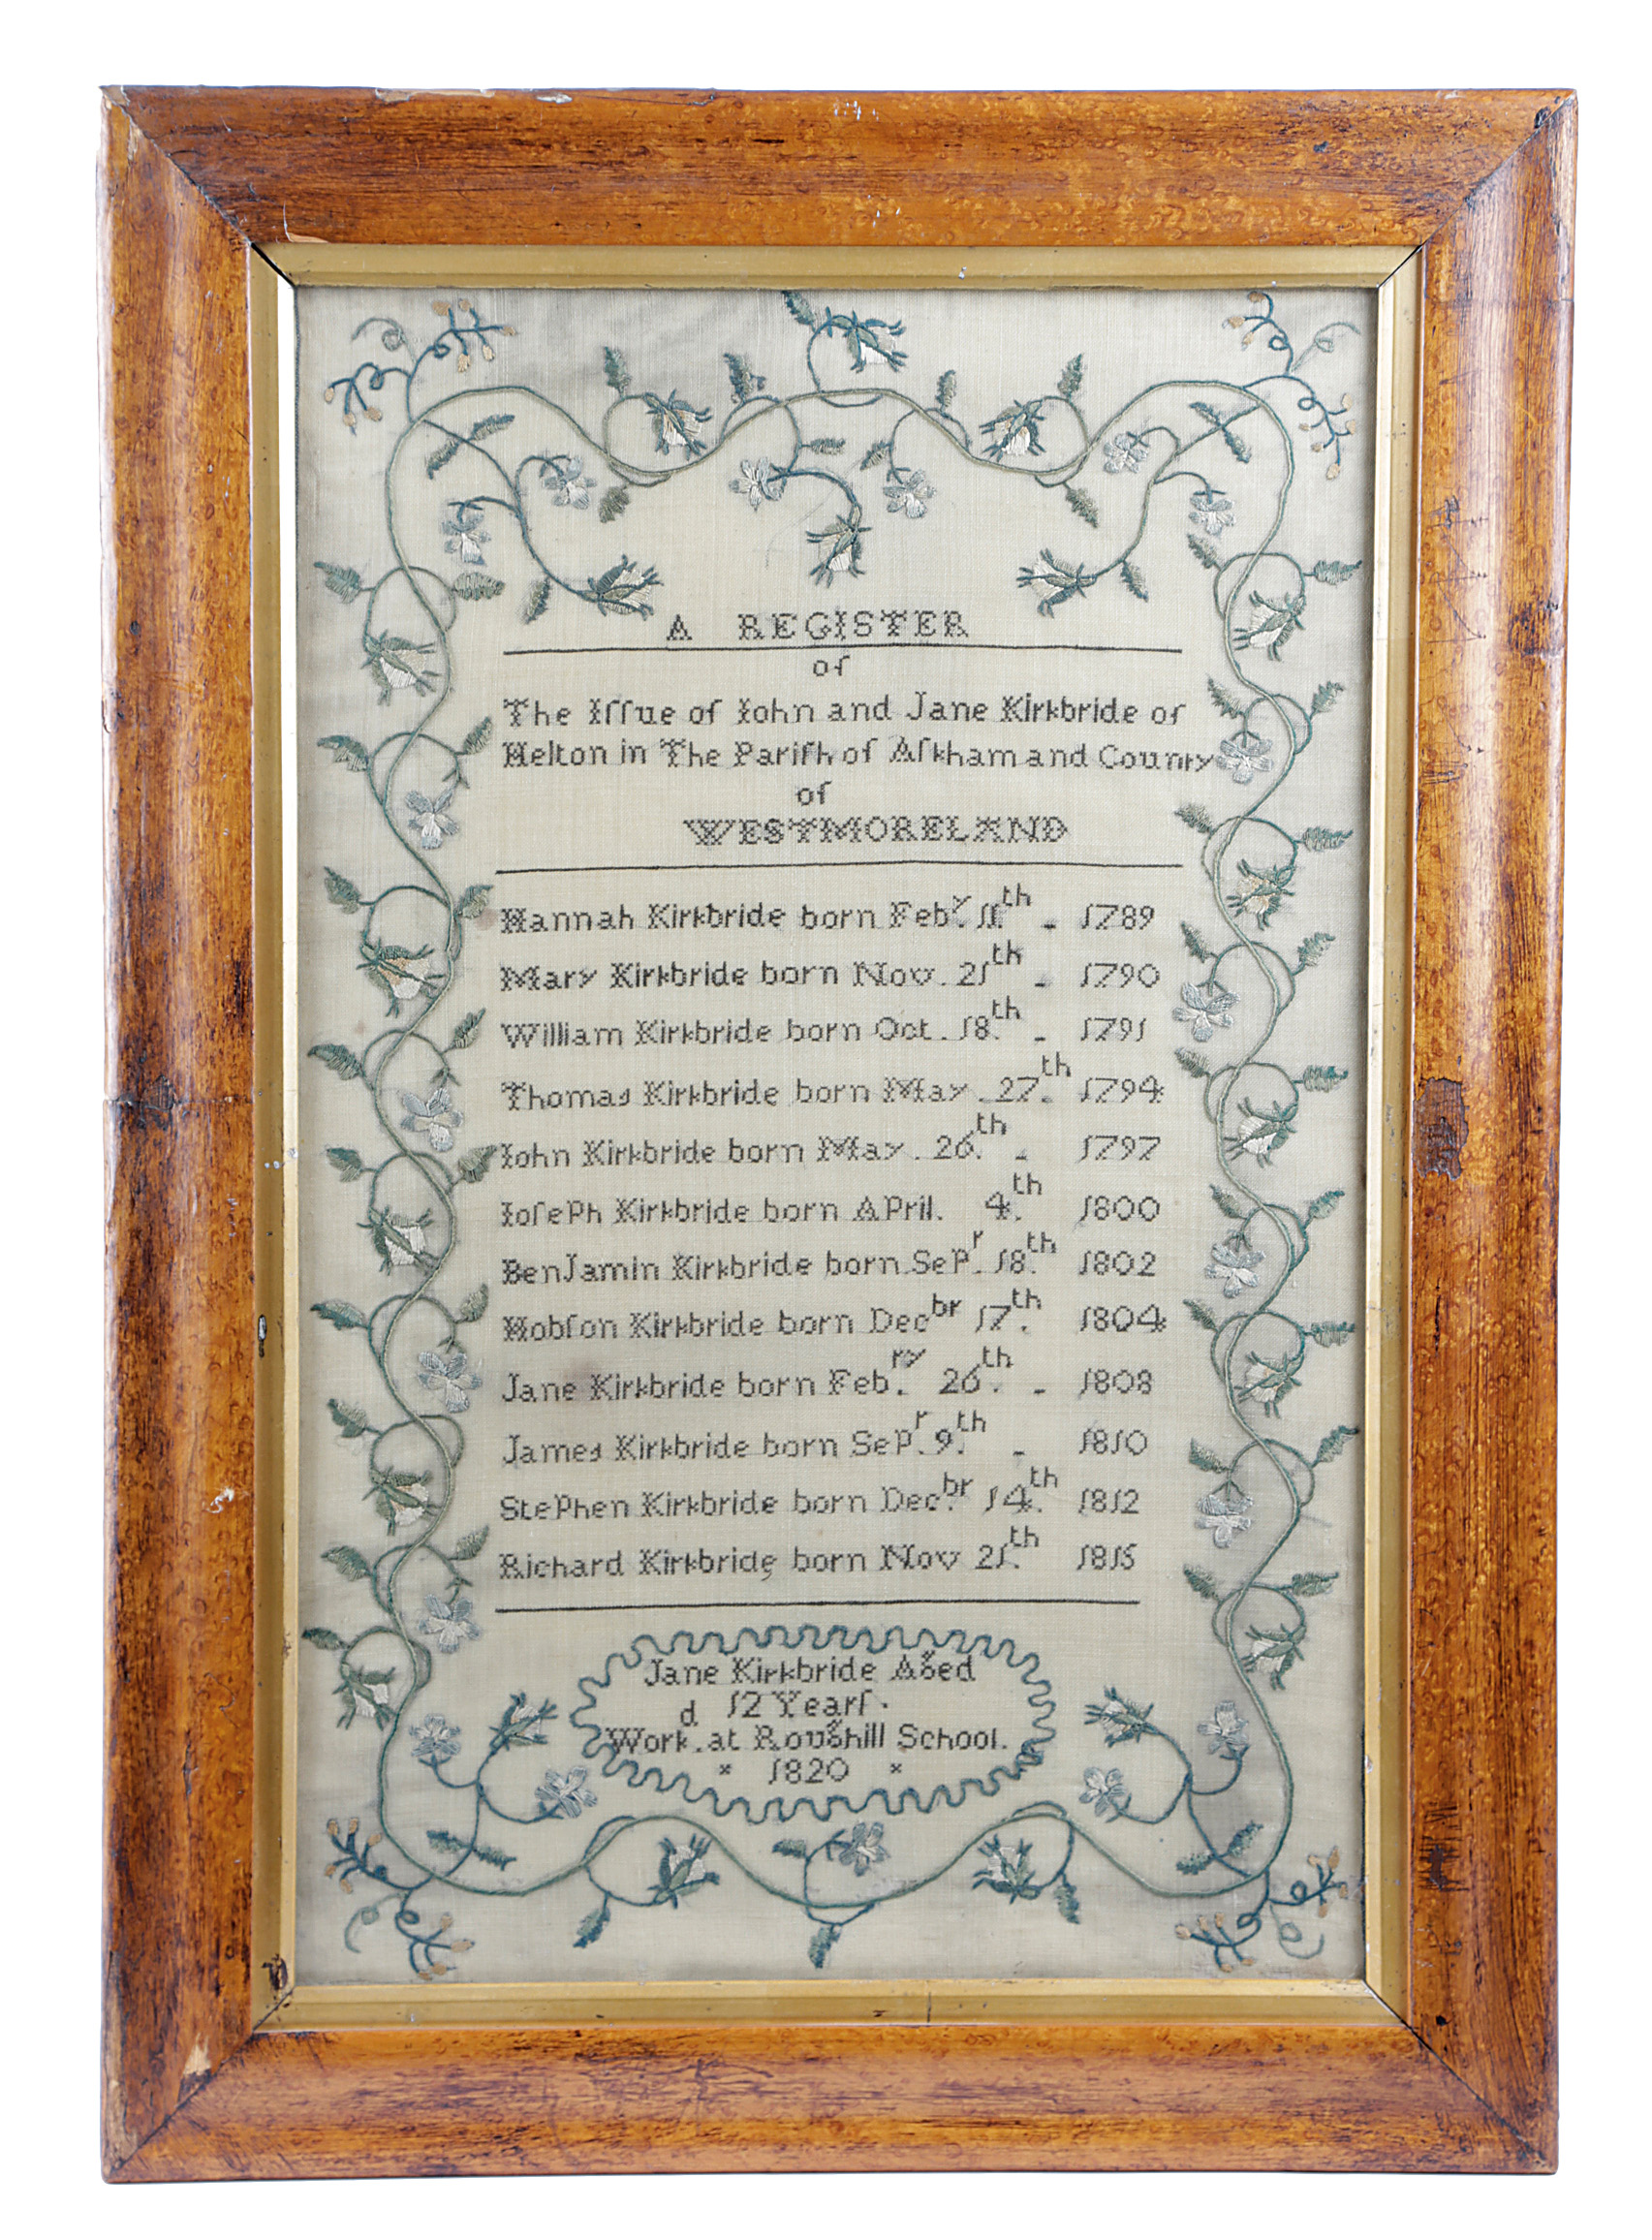 A REGISTER
of
The Iſſue of Iohn and Jane Kirkbride of
Helton in The Pariſh of Aſkham and County
of
WESTMORELAND
Hannah Kirkbride born Feb.y 11.th - 1789
Mary Kirkbride born Nov. 21th - 1790
William Kirkbride born Oct. 18.th - 1791
Thomas Kirkbride born May. 27.th 1794
Iohn Kirkbride born May. 26.th - 1797
IoſePh Kirkbride born APril. 4.th 1800
BenJamin Kirkbride born SeP.r 18.th 1802
Hobſon Kirkbride born Decbr 17.th 1804
Jane Kirkbride born Feb.ry 26.th - 1808
James Kirkbride born SeP.r 9.th - 1810
StePhen Kirkbride born Dec.br 14.th 1812
Richard Kirkbride born Nov 21.th 1815
Jane Kirkbride Aged
12 Yearſ.
Work.d at Roughill School.
* 1820 *